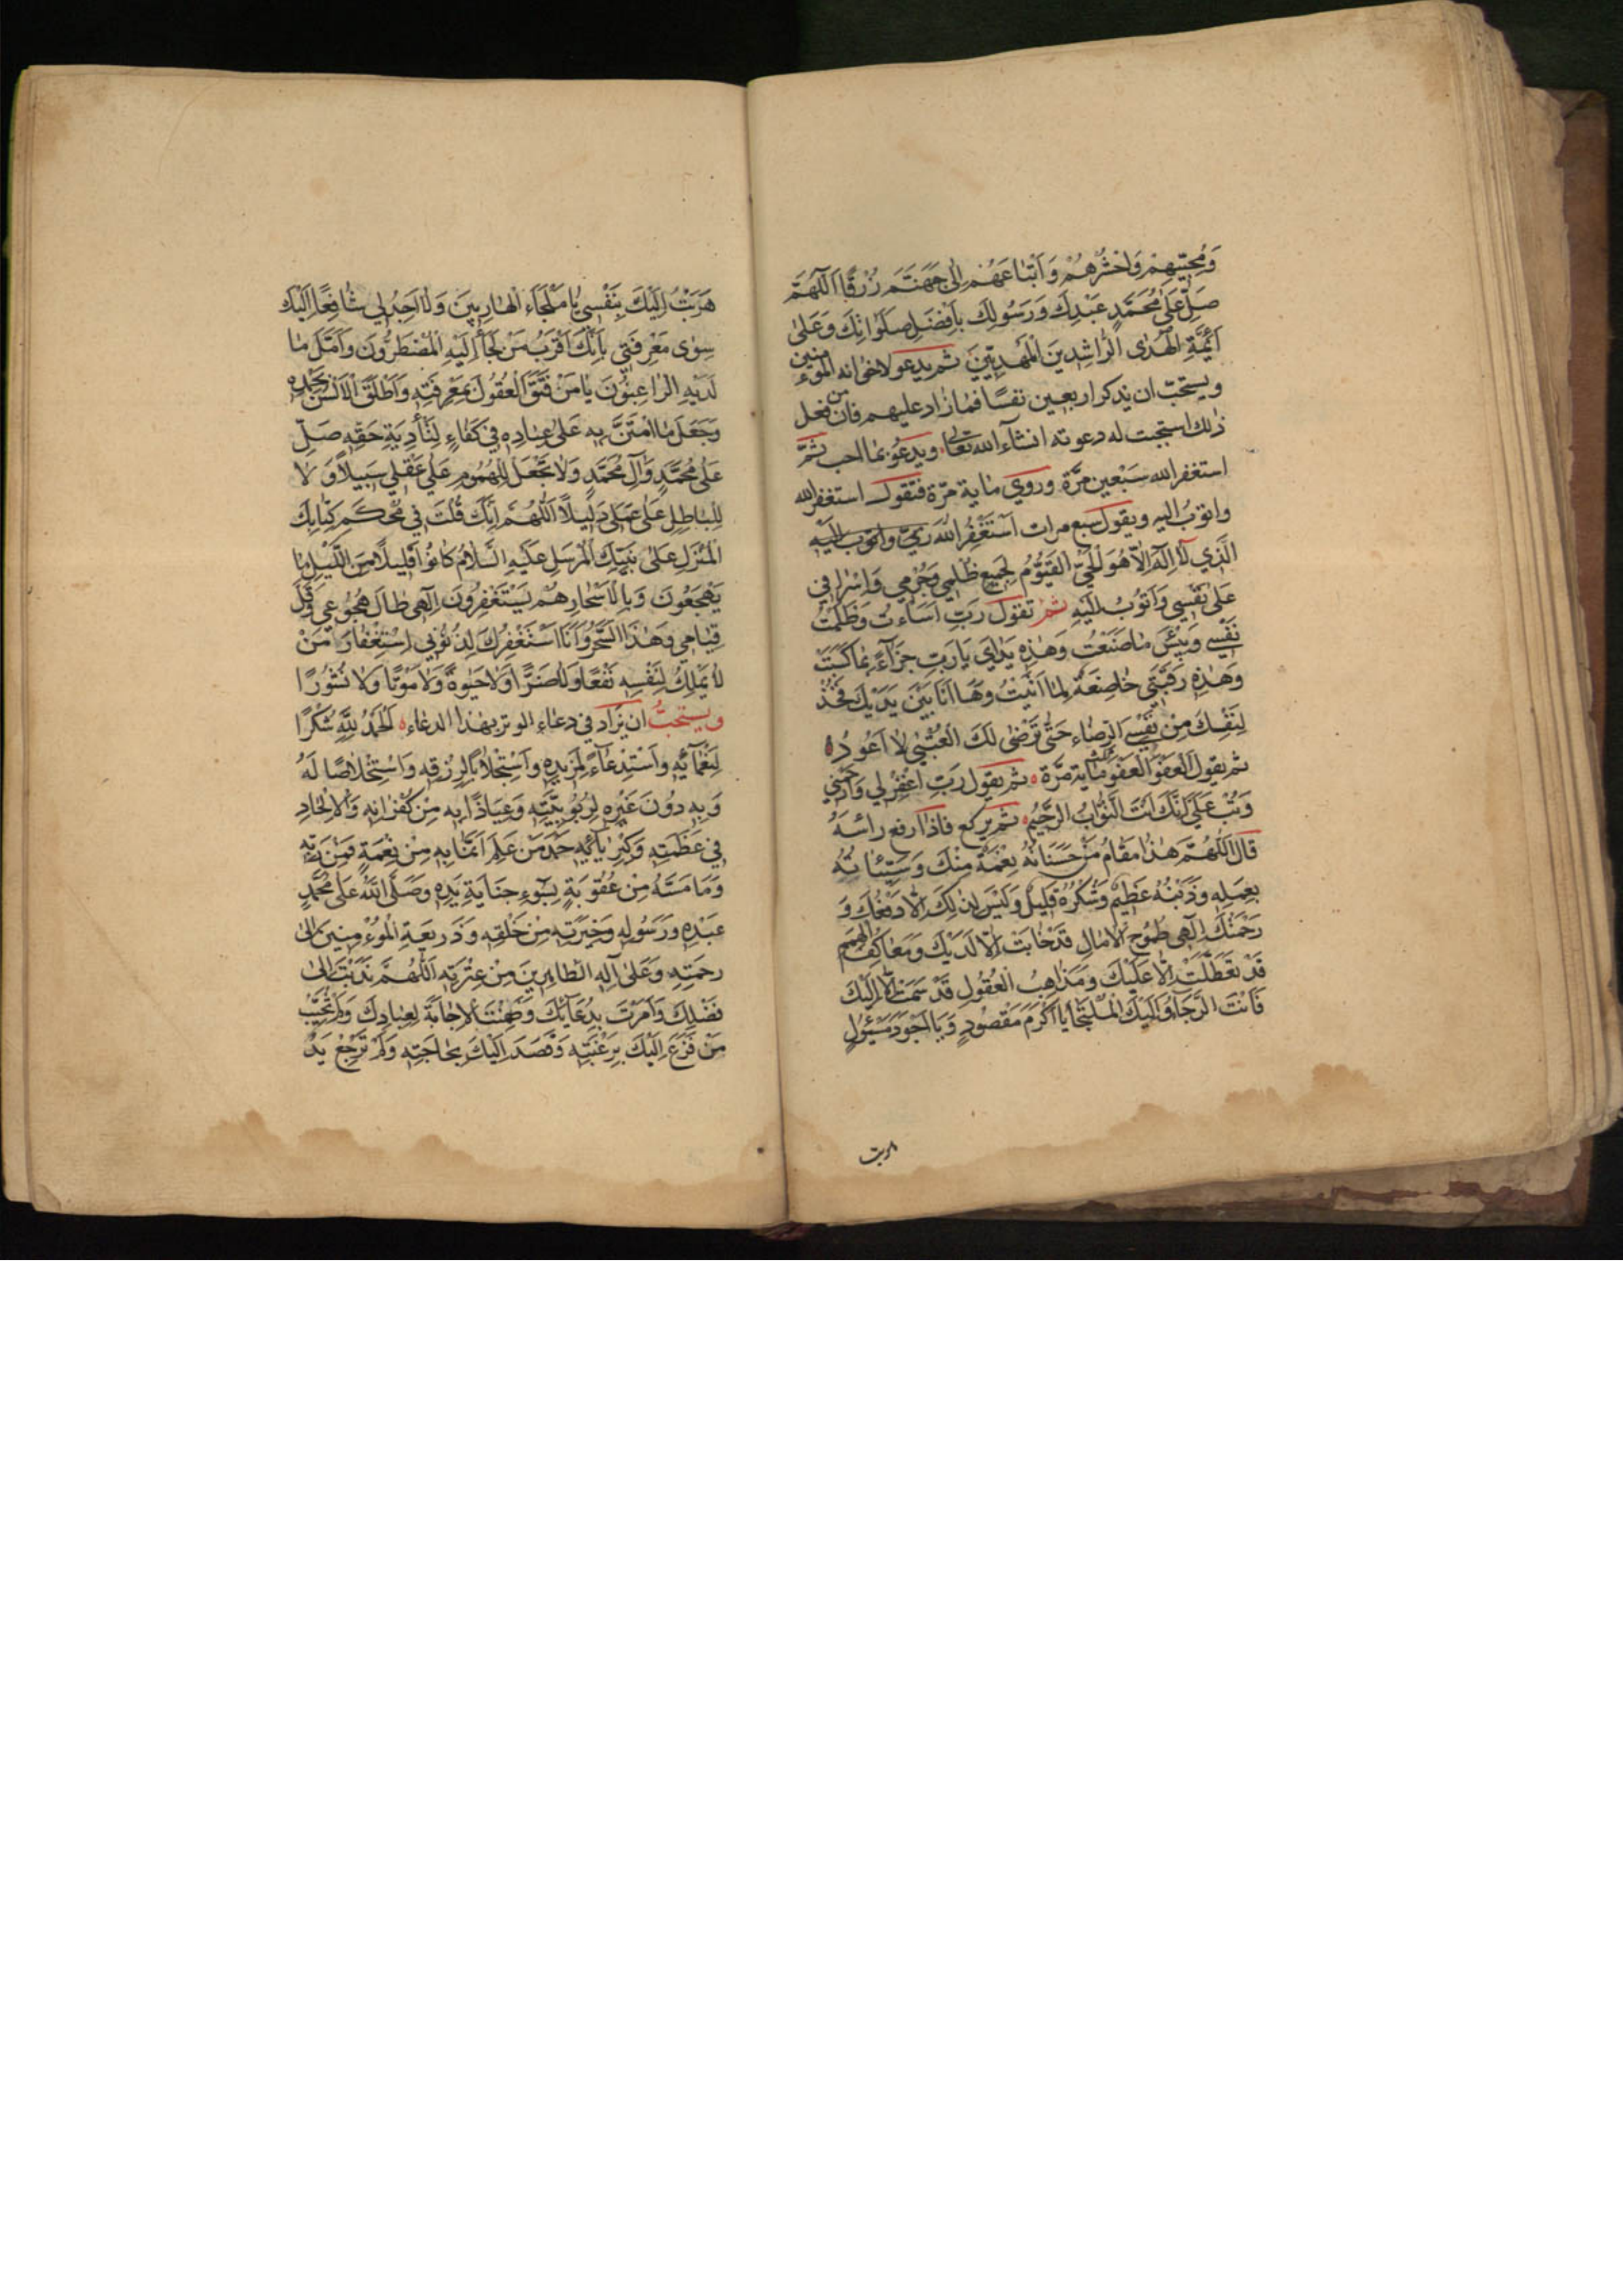 وَمُحِبّيهِمْ وَاحْشُرْهُمْ وَاَتْبَاعَهُمْ اِلٰى جَهَنَّمَ زُرْقًا اَللّٰهُمَّ
صَلِّ عَلٰى مُحَمَّدٍ عَبْدِكَ وَرَسُولِكَ بِاَفْضَلِ صَلَوٰاتِكَ وَعَلٰى
اَئِمَّةِ الْهُدَى الرّٰاشِدينَ الْمَهْدِيّينَ ثم يدعو لاخوانه المؤمنين
ويستحبّ ان يذكر اربعين نفسًا فمازاد عليهم فان من فعل
ذلك استجبت له دعوته انشآء الله تعالى ويدعو بما احب ثمّ
استغفر الله سبعين مرّة وروي ماية مرّة فتقول استغفر الله
واتوب اليه ويقول سبع مرات اَسْتَغْفِرُ اللهَ رَبّي وَاَتُوبُ اِلَيْهِ
الَّذي لاٰ اِلٰهَ اِلاّٰ هُوَ الْحَيُّ الْقَيُّومُ لِجَميعِ ظُلْمي وَجُرْمي وَاِسْرٰافي
عَلٰى نَفْسي وَاَتُوبُ اِلَيْهِ ثم تقول رَبِّ اَسَاءْتُ وَظَلَمْتُ
نَفْسي وَبِئْسَ مٰا صَنَعْتُ وَهٰذِهِ يَدٰايَ يٰا رَبِّ جَزٰآءً بِمٰا كَسَبَتْ
وَهٰذِهِ رَقَبَتي خٰاضِعَةٌ لِمٰا اَتَيْتُ وَهٰا اَنَا بَيْنَ يَدَيْكَ فَخُذْ
لِنَفْسِكَ مِنْ نَفْسِي الرِّضٰاءَ حَتّٰى تَرْضٰى لَكَ الْعُتْبٰى لاٰ اَعُودُ
ثم يقول اَلْعَفْوَ الْعَفْوَ ثلثمائة مرّة ثم يقول رَبِّ اغْفِرْ لي وَارْحَمْني
وَتُبْ عَلَيَّ اِنَّكَ اَنْتَ التَّوّٰابُ الرَّحيمُ ثم يركع فاذا رفع رأسه
قال اَللّٰهُمَّ هٰذٰا مَقٰامُ مَنْ حَسَنٰاتُهُ نِعْمَةٌ مِنْكَ وَسَيِّئٰاتُهُ
بِعَمَلِهِ وَذَنْبُهُ عَظيمٌ وَشُكْرُهُ قَليلٌ وَلَيْسَ لِذٰلِكَ اِلاّٰ دَفْعُكَ وَ
رَحْمَتُكَ اِلٰهي طُمُوحُ الْاٰمٰالِ قَدْ خٰابَتْ اِلاّٰ لَدَيْكَ وَمَعٰاكِفُ الْهِمَمِ
قَدْ تَعَطَّلَتْ اِلاّٰ عَلَيْكَ وَمَذٰاهِبُ الْعُقُولِ قَدْ سَمَتْ اِلاّٰ اِلَيْكَ
فَاَنْتَ الرَّجٰآءُ وَاِلَيْكَ الْمُلْتَجٰا يٰا اَكْرَمَ مَقْصُودٍ وَيٰا اَجْوَدَ مَسْئُولٍ
هربت
هَرَبْتُ اِلَيْكَ بِنَفْسي يٰا مَلْجَاءَ الْهٰارِبينَ وَلاٰ اَجِدُ لي شٰافِعًا اِلَيْكَ
سِوٰى مَعْرِفَتي بِاَنَّكَ اَقْرَبُ مَنْ لَجَأَ اِلَيْهِ الْمُضْطَرُّونَ وَاَمَّلَ مٰا
لَدَيْهِ الرّٰاغِبُونَ يٰا مَنْ فَتَقَ الْعُقُولَ بِمَعْرِفَتِهِ وَاَطْلَقَ الْاَلْسُنَ بِحَمْدِهِ
وَجَعَلَ مَا امْتَنَّ بِهِ عَلٰى عِبٰادِهِ في كَفٰاءٍ لِتَأْدِيَةِ حَقِّهِ صَلِّ
عَلٰى مُحَمَّدٍ وَآلِ مُحَمَّدٍ وَلاٰ تَجْعَلْ لِلْهُمُومِ عَلٰى عَقْلي سَبيلًا وَلاٰ
لِلْبٰاطِلِ عَلٰى عَمَلي دَليلًا اَللّٰهُمَّ اِنَّكَ قُلْتَ في مُحْكَمِ كِتٰابِكَ
الْمُنْزَلِ عَلٰى نَبِيِّكَ الْمُرْسَلِ عَلَيْهِ السَّلاٰمُ كٰانُوا قَليلًا مِنَ اللَّيْلِ مٰا
يَهْجَعُونَ وَبِالْاَسْحٰارِ هُمْ يَسْتَغْفِرُونَ اِلٰهي طٰالَ هُجُوعي وَقَلَّ
قِيٰامي وَهٰذَا السَّحَرُ وَاَنَا اَسْتَغْفِرُكَ لِذُنُوبي اِسْتِغْفٰارَ مَنْ
لاٰ يَمْلِكُ لِنَفْسِهِ نَفْعًا وَلاٰ ضَرًّا وَلاٰ حَيٰوةً وَلاٰ مَوْتًا وَلاٰ نُشُورًا
ويستحبُّ ان يزاد في دعاء الوتر بهذا الدعاء اَلْحَمْدُ لِلّٰهِ شُكْرًا
لِنَعْمٰآئِهِ وَاسْتِدْعٰآءً لِمَزيدِهِ وَاسْتِجْلاٰبًا لِرِزْقِهِ وَاسْتِخْلاٰصًا لَهُ
وَبِهِ دُونَ غَيْرِهِ لِرُبُوبِيَّتِهِ وَعِيٰاذًا بِهِ مِنْ كُفْرٰانِهِ وَالْاِلْحٰادِ
في عَظَمَتِهِ وَكِبْرِيٰآئِهِ حَمْدَ مَنْ عَلِمَ اَنَّ مٰا بِهِ مِنْ نِعْمَةٍ فَمِنْ رَبِّهِ
وَمٰا مَسَّهُ مِنْ عُقُوبَةٍ بِسُوءِ جِنٰايَةِ يَدِهِ وَصَلَّى اللهُ عَلٰى مُحَمَّدٍ
عَبْدِهِ وَرَسُولِهِ وَخِيَرَتِهِ مِنْ خَلْقِهِ وَذَريعَةِ الْمُؤْمِنينَ اِلٰى
رَحْمَتِهِ وَعَلٰى آلِهِ الطّٰاهِرينَ مِنْ عِتْرَتِهِ اَللّٰهُمَّ نَدَبْتَ اِلٰى
فَضْلِكَ وَاَمَرْتَ بِدُعٰآئِكَ وَضَمِنْتَ الْاِجٰابَةَ لِعِبٰادِكَ وَلَمْ تُخَيِّبْ
مَنْ فَزِعَ اِلَيْكَ بِرَغْبَتِهِ وَقَصَدَ اِلَيْكَ بِحٰاجَتِهِ وَلَمْ تَرْجِعْ يَدٌ